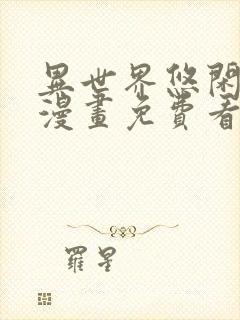 異世界悠閑
漫畫免費看
羅星